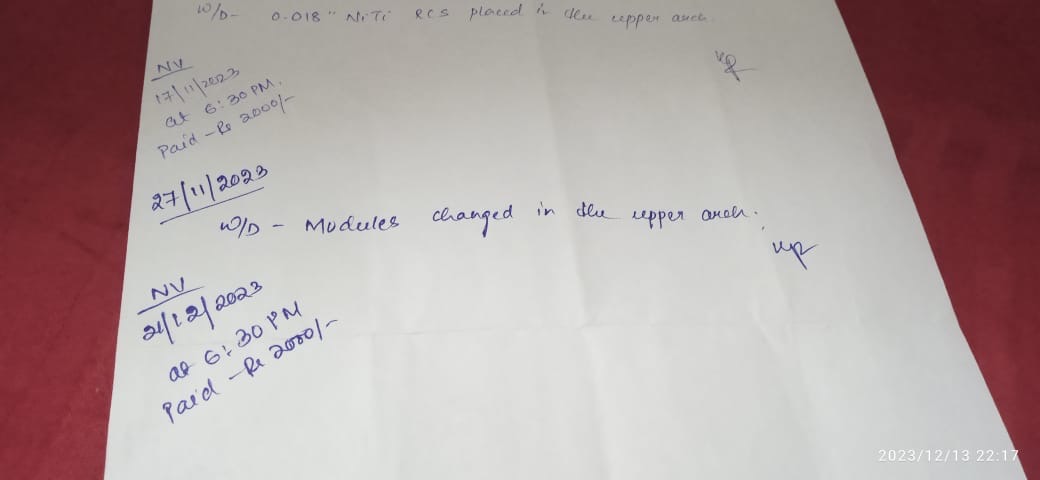 W/D- 0.018" NiTi RCS placed in the upper arch.
NV
17/11/2023
at 6:30 PM.
Paid - Rs 2000/-
27/11/2023
W/D - Modules changed in the upper arch.
NV
21/12/2023
at 6:30 PM
Paid - Rs 2000/-
2023/12/13 22:17